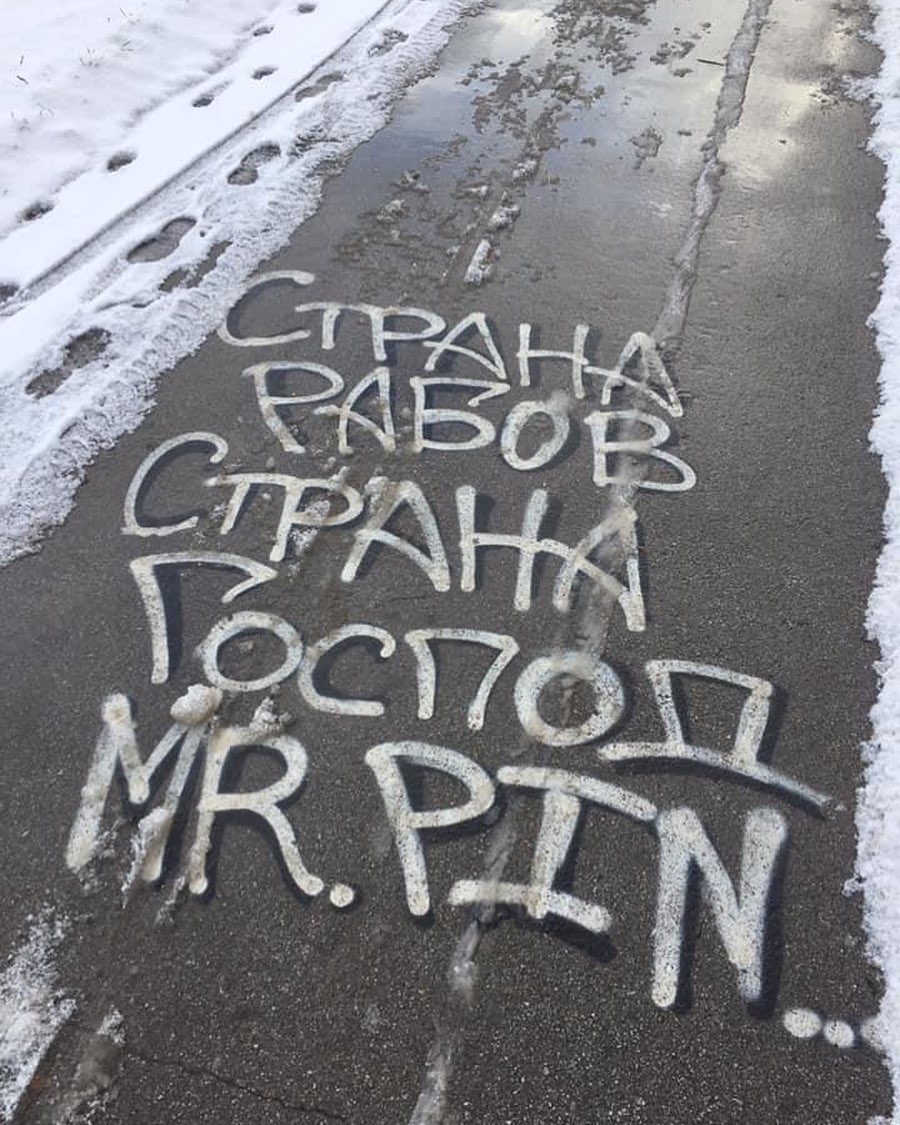 СТРАНА
РАБОВ
СТРАНА
ГОСПОД
MR. PIN...